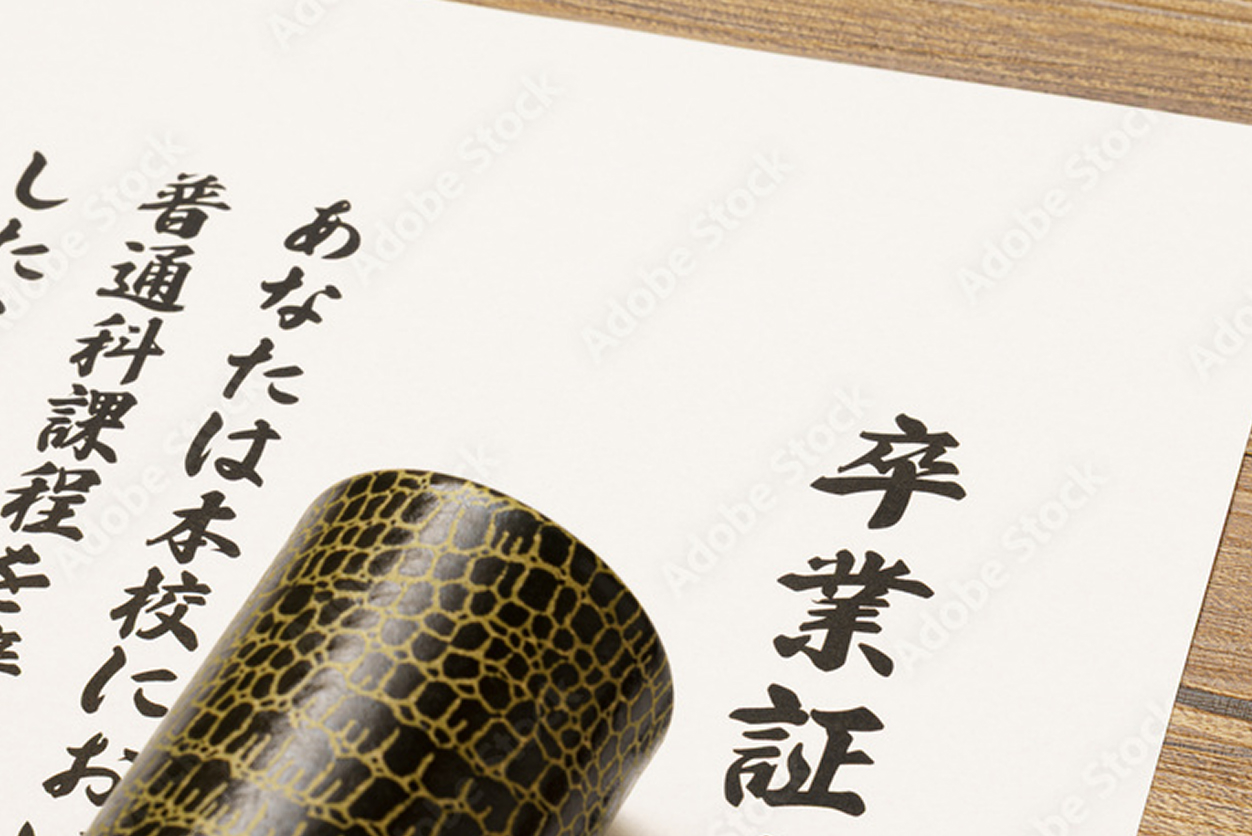 卒業証
あなたは本校にお
普通科課程を卒
した